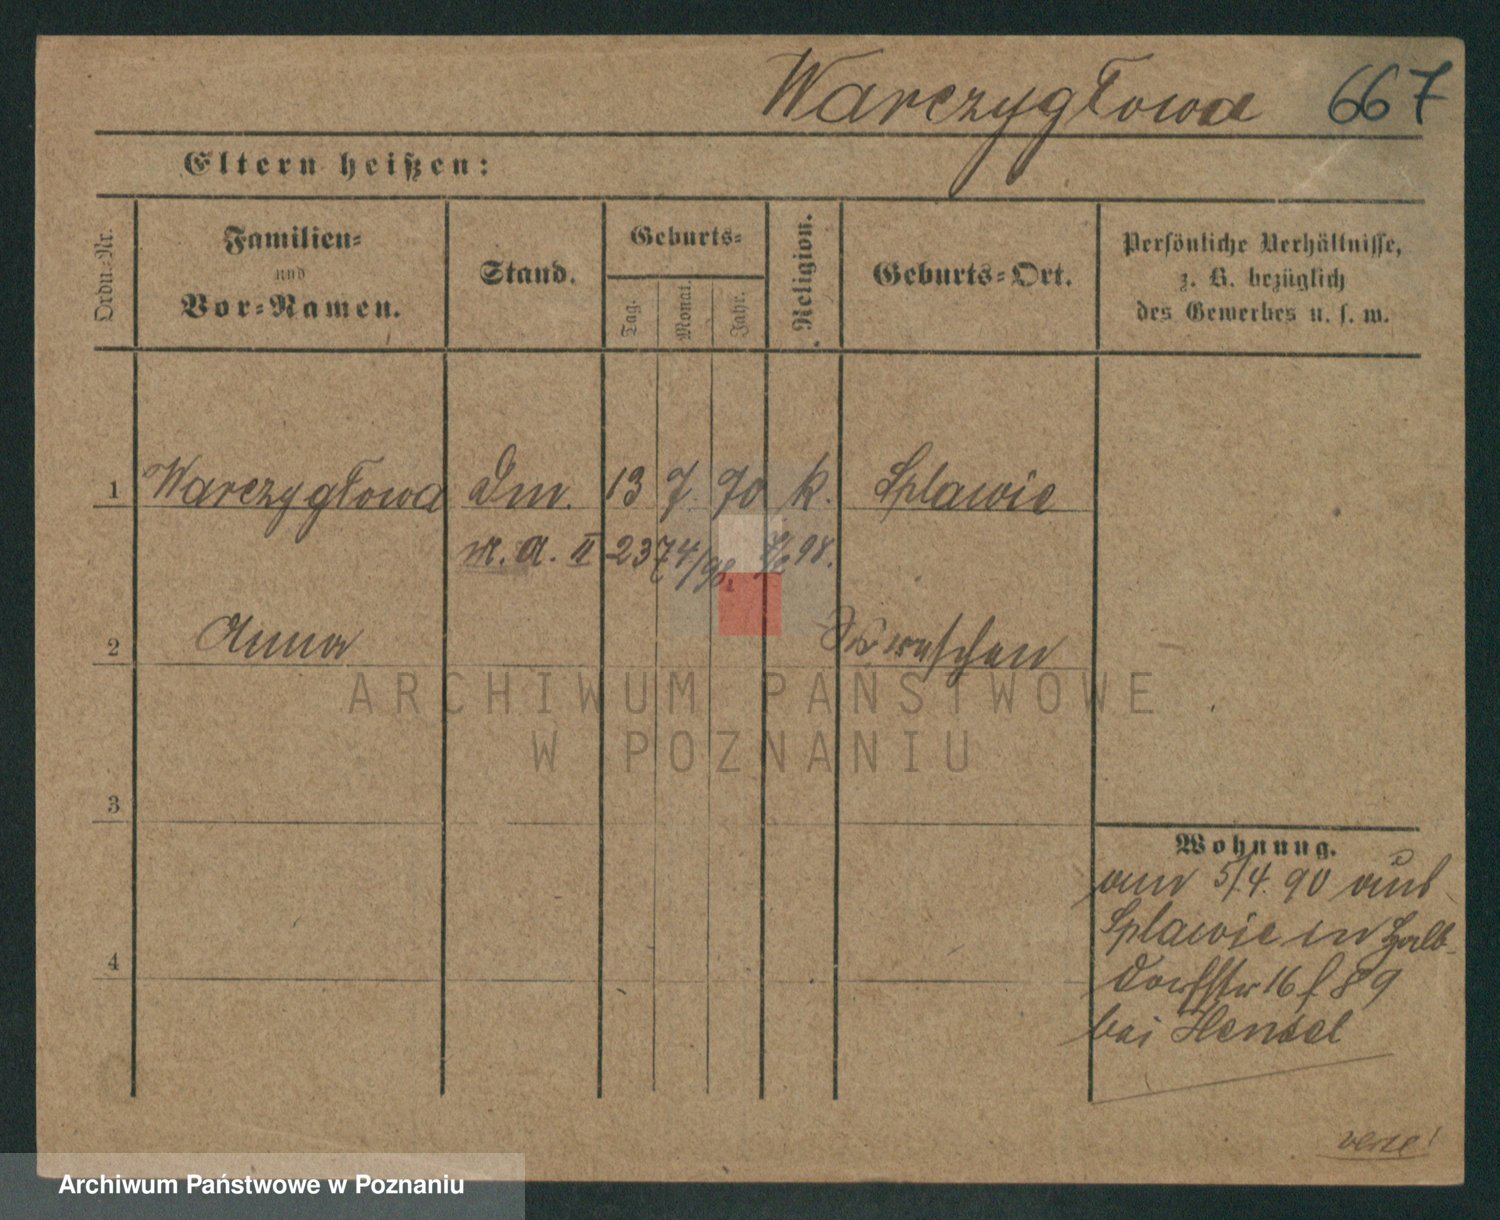 Warczygłowa 667
Eltern heißen:
Ordn.=Nr.
Familien=
und
Vor=Namen.
Stand.
Geburts=
Tag.
Monat.
Jahr.
Religion.
Geburts=Ort.
Persönliche Verhältnisse,
z. B. bezüglich
des Gewerbes u. s. w.
1 Warczygłowa Dm. 13 7. 70 k. Splawie
M. A. II 2374/98. 98.
2 Anna Schwaschen
3
4
Wohnung.
am 5/4. 90 aus
Splawie in Halb-
dorfstr 16 f 89
bei Hensel
verte!
ARCHIWUM PAŃSTWOWE
W POZNANIU
Archiwum Państwowe w Poznaniu